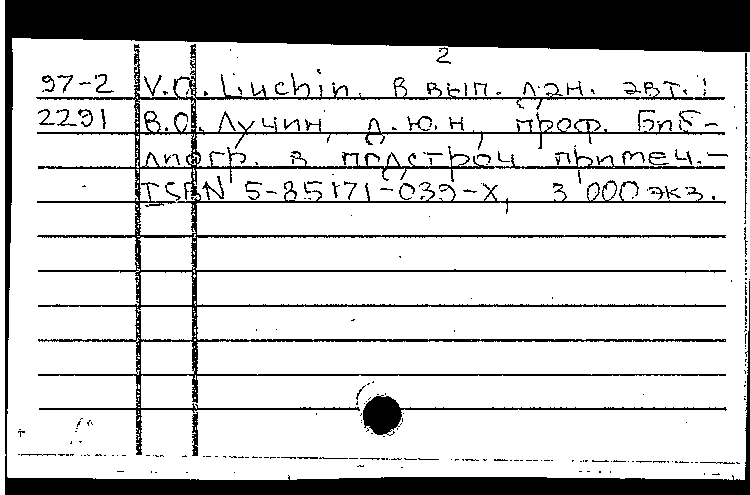 2
97-2 V.O. Liuchin. В вып. дан. авт.:
2291 В.О. Лучин, д.ю.н, проф. Биб-
лиогр. в подстроч примеч.-
ISBN 5-85171-039-X, 3 000 экз.